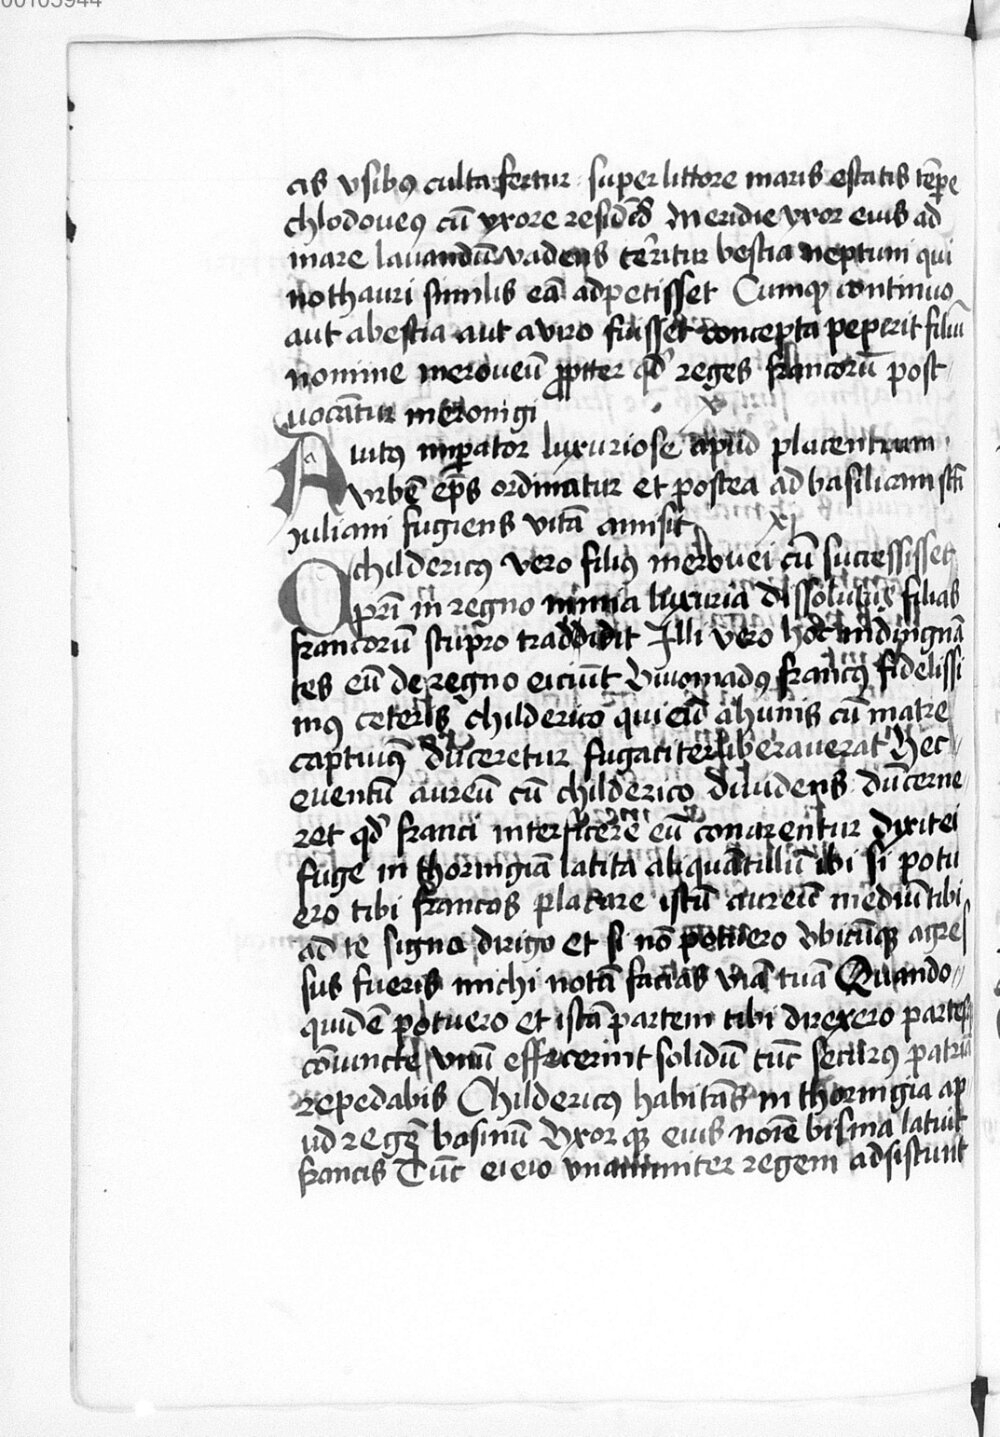 00105944
cis vsibꝯ culta fertur super littore maris estatis tp̄e
chlodoueꝯ cū vxore residēs Meridie vxor eius ad
mare lauandū vadens terˀitur bestia neptuni qui
nothauri similis eā adpetisset Cumqꝫ continuo
aut abestia aut aviro fuisset concepta peperit filiū
nomine meroueū ꝓpter qd̓ reges francorū post
vocātur merouigi
x
Auitꝯ imꝑator luxuriose apud placentiam
vrbē ep̄s ordinatur et postea ad basilicam sc̄ti
iuliani fugiens vitā amisit
xi
Childericꝯ vero filiꝯ merouei cū successisset
pr̄i in regno nimia luxuria dissolutus filias
francorū stupro traddidit Illi vero hoc indingnā
tes eū de regno eiciūt Viuomadꝯ francꝯ fidelissi
mꝯ ceteris childerico qui eū ahunis cū matre
captiuꝯ duceretur fugaciter liberauerat Hec
euentū aureū cū childerico diuidens dū cerne
ret qd̓ franci interficere eū conarentur dixit ei
fuge in thoringiā latita aliquātillū ibi si potu
ero tibi francos placare istū aureū mediū tibi
ad te signa dirigo et si nō potuero Vbicūqꝫ agres
sus fueris michi notā facias viā tuā Quando
quidē potuero et istā partem tibi direxero partes
cōuncte vnū effecerint solidū tūc securꝯ patriā
repedabis Childericꝯ habitās in thoringia ap
ud regē basinū Vxor qꝫ eius noīe bisina latuit
francis Tūc eieio vnanimiter regem adsistunt